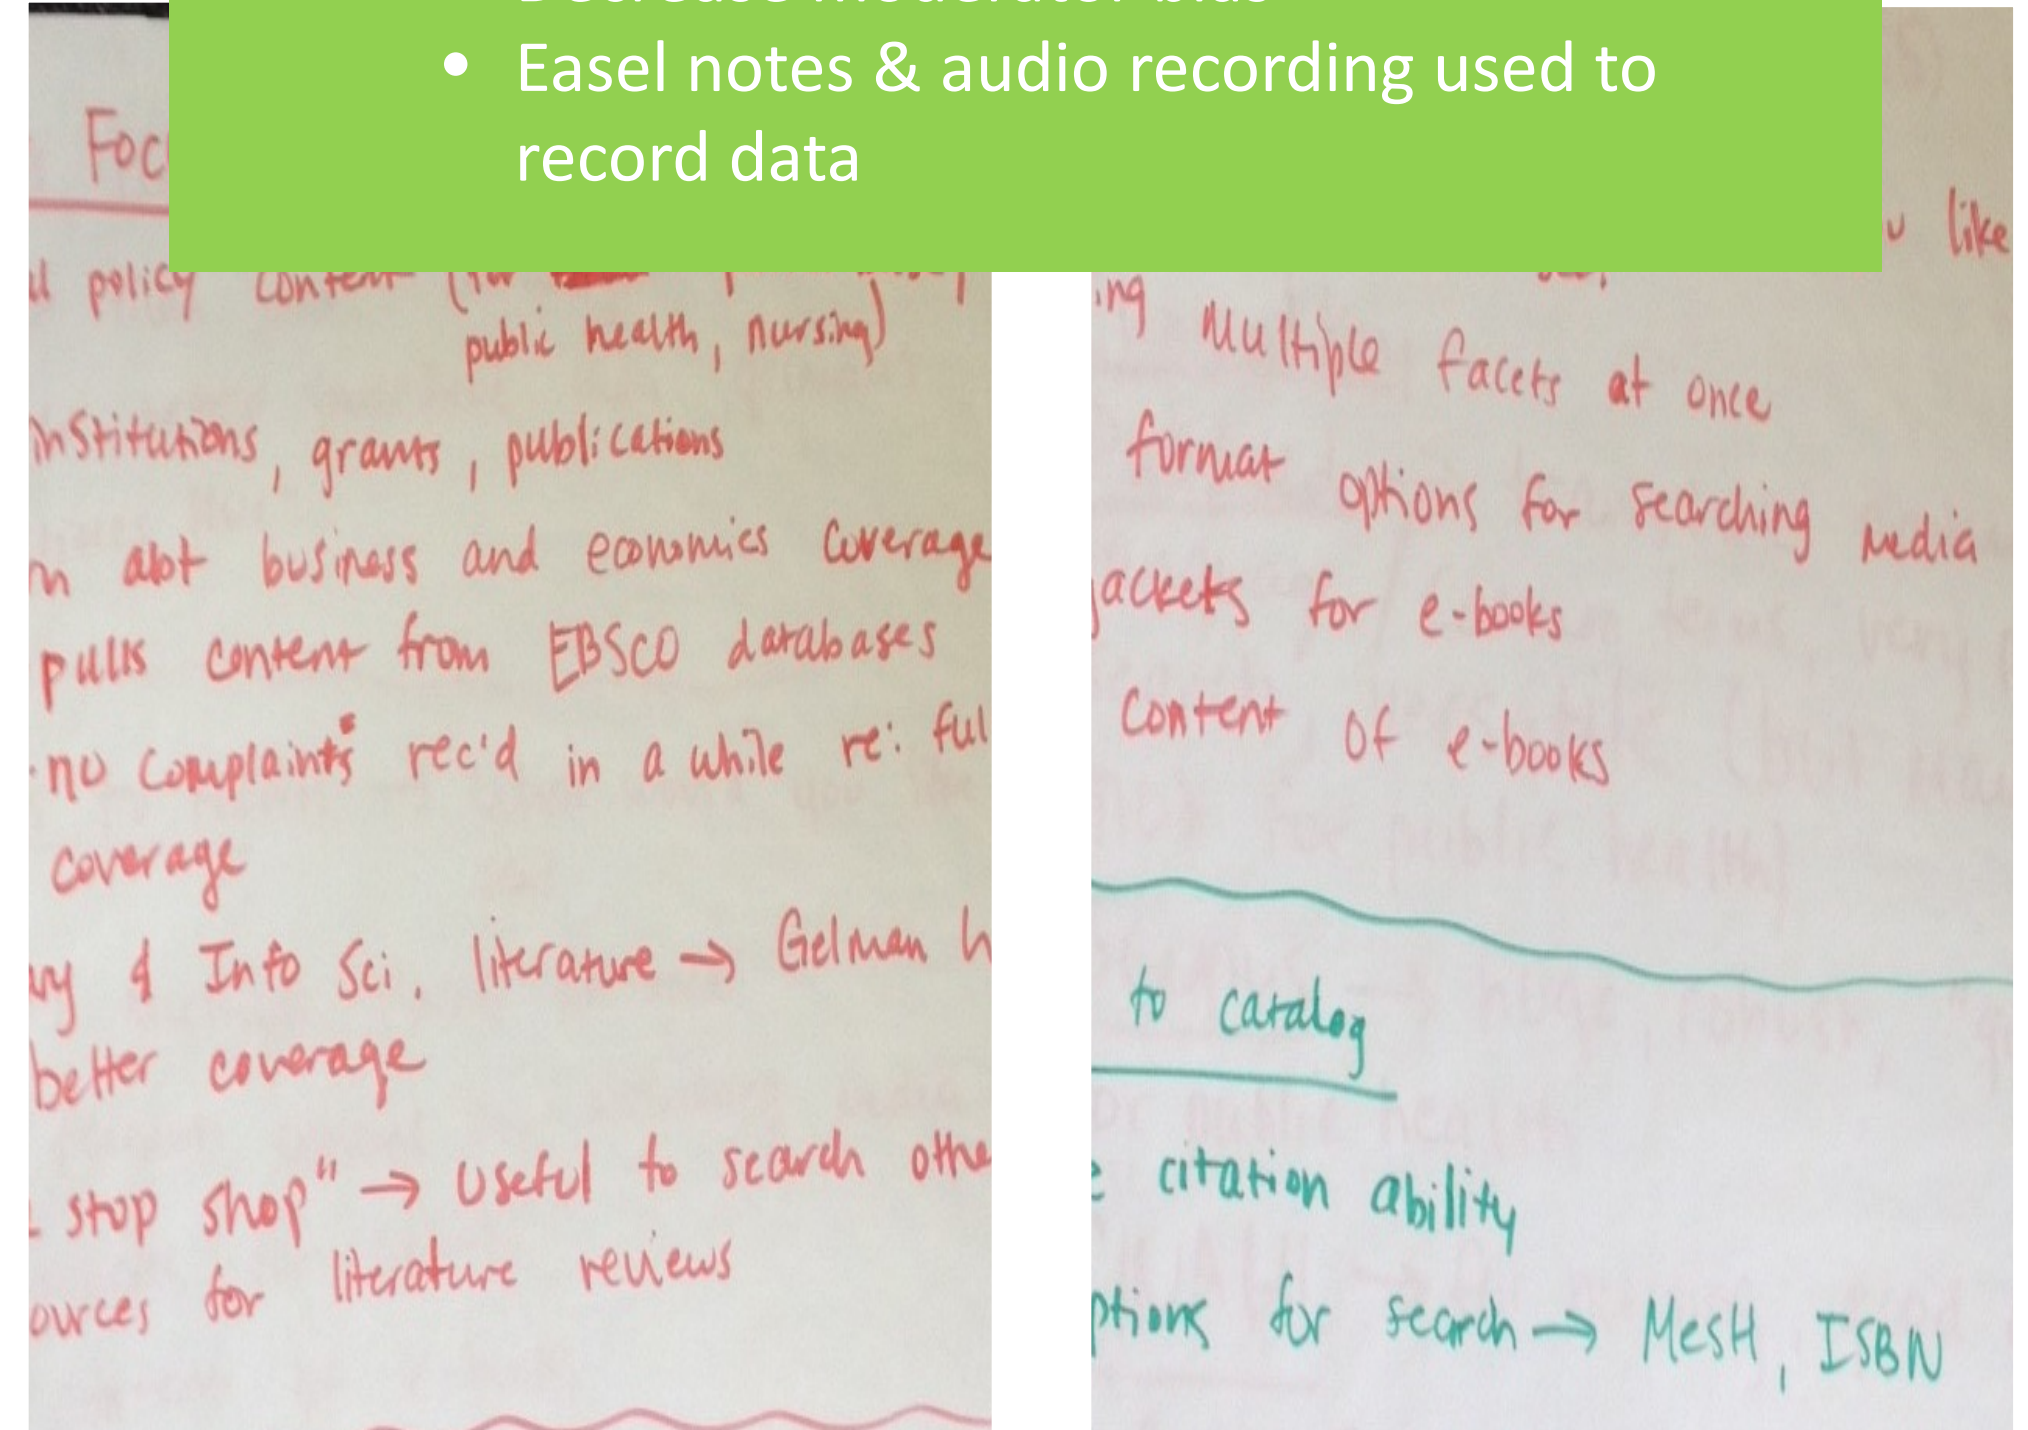 • Easel notes & audio recording used to
record data
policy content (for
public health, nursing)
institutions, grants, publications
abt business and economics coverage
pulls content from EBSCO databases
-no complaints rec'd in a while re: ful
coverage
& Info Sci. literature → Gelman h
better coverage
stop shop" → useful to search othe
ources for literature reviews
u like
ing multiple facets at once
format options for searching media
jackets for e-books
content of e-books
to catalog
e citation ability
ptions for search → MesH, ISBN